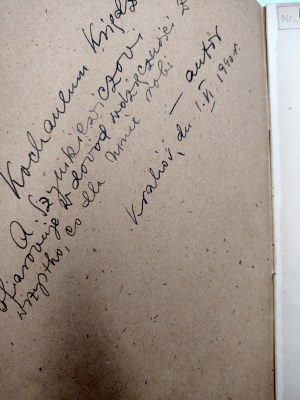 Kochanemu Księdz
A. Szymkiewiczowi
ofiarowuje w dowód wdzięczności z
wszystko, co dla mnie robi
— autor
Kraków, dn 1. VI 1940 r.
Nr.